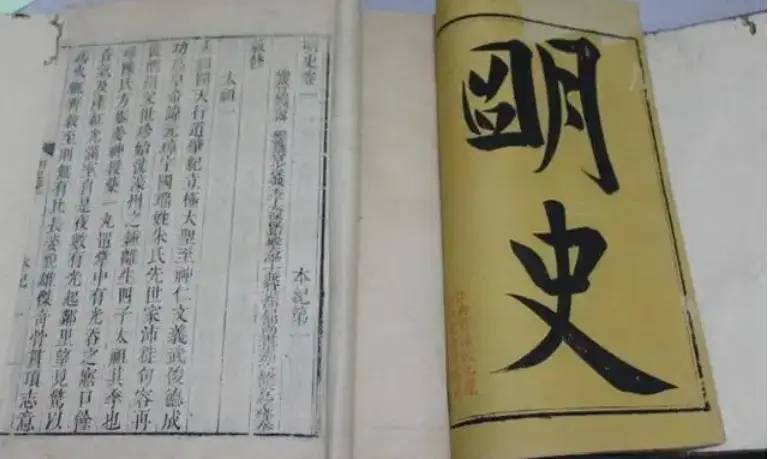 明史
明史卷一 本紀第一
敕修
太祖一
太祖開天行道肇紀立極大聖至神仁文義武俊德成
功高皇帝諱元璋字國瑞姓朱氏先世家沛徙句容再
徙泗州父世珍始徙濠州之鍾離生四子太祖其季也
母陳氏方娠夢神授藥一丸置掌中有光吞之寤口餘
香氣及產紅光滿室自是夜數有光起鄰里望見驚以
為火輒奔救至則無有比長姿貌雄傑奇骨貫頂志意
本紀一